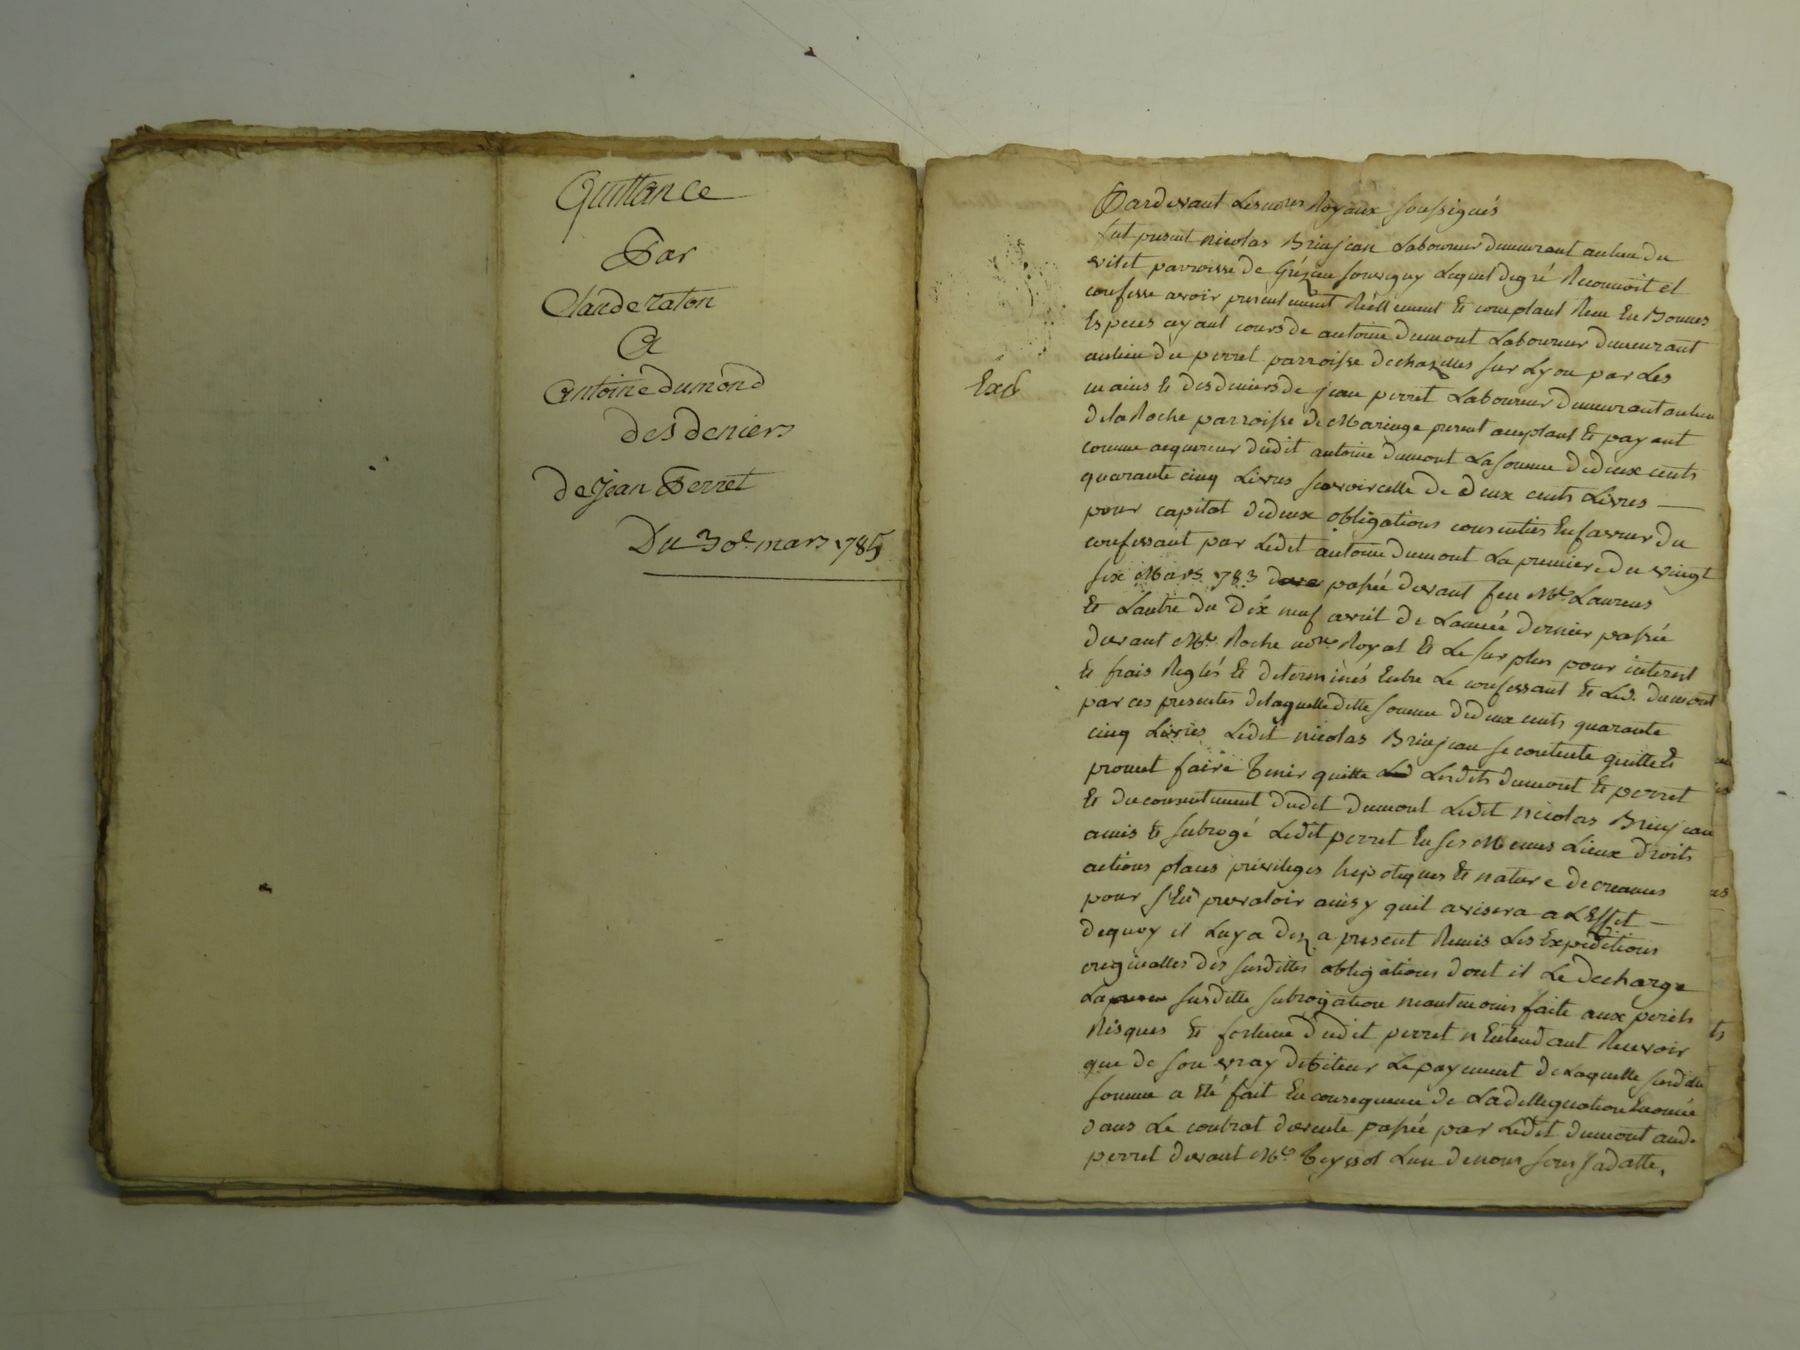 Quittance
Par
Claude raton
A
Antoine dumond
des deniers
de Jean Perret
Du 30e. mars 1785
Pardevant Les nores Royaux soussignés
fut present nicolas Brinjean Laboureur demeurant au lieu du
vilet parroisse de Grézieu souvigny Lequel de gré Reconnoit et
confesse avoir presentement Réellement Et comptant Reçu En Bonnes
Especes ayant cours de antoine dumont Laboureur demeurant
au lieu du perret parroisse de chazelles sur Lyon par Les
Exd
mains Et des deniers de jean perret Laboureur demeurant au lieu
de la Roche parroisse de Maringe present acceptant Et payant
comme acquereur dudit antoine dumont La somme de deux cents
quarante cinq Livres sçavoir celle de deux cents Livres —
pour capital de deux obligations consenties En faveur du
confessant par Ledit antoine dumont La premiere du vingt
six Mars 1783 passée devant feu Me. Laurens
Et L'autre du dix neuf avril de L'année derniere passée
devant Me. Roche nore. Royal Et Le surplus pour interest
Et frais Reglés Et determinés Entre Le confessant Et Led. dumont
par ces presentes de laquelle ditte somme de deux cents quarante
cinq Livres Ledit nicolas Brinjean se contente quitte Et
promet faire tenir quitte Led Lesdits dumont Et perret
Et du consentement dudit dumont Ledit nicolas Brinjean
a mis Et subrogé Ledit perret En ses Memes Lieux droits
actions places privileges hipoteques Et nature de creances
pour s'En prevaloir ainsy quil avisera a L'Effet —
de quoy il Luy a dez a present Remis Les Expeditions
originalles des susdittes obligations dont il Le decharge
La susditte subrogation neantmoins faite aux perils
Risques Et fortune dudit perret n'Entendant Recevoir
que de son vray debiteur Le payement de Laquelle susditte
somme a Eté fait En consequence de La dellegation Enoncée
dans Le contrat de vente passée par Ledit dumont aud.
perret devant Me. Teyssot L'un de nous sous sa datte,